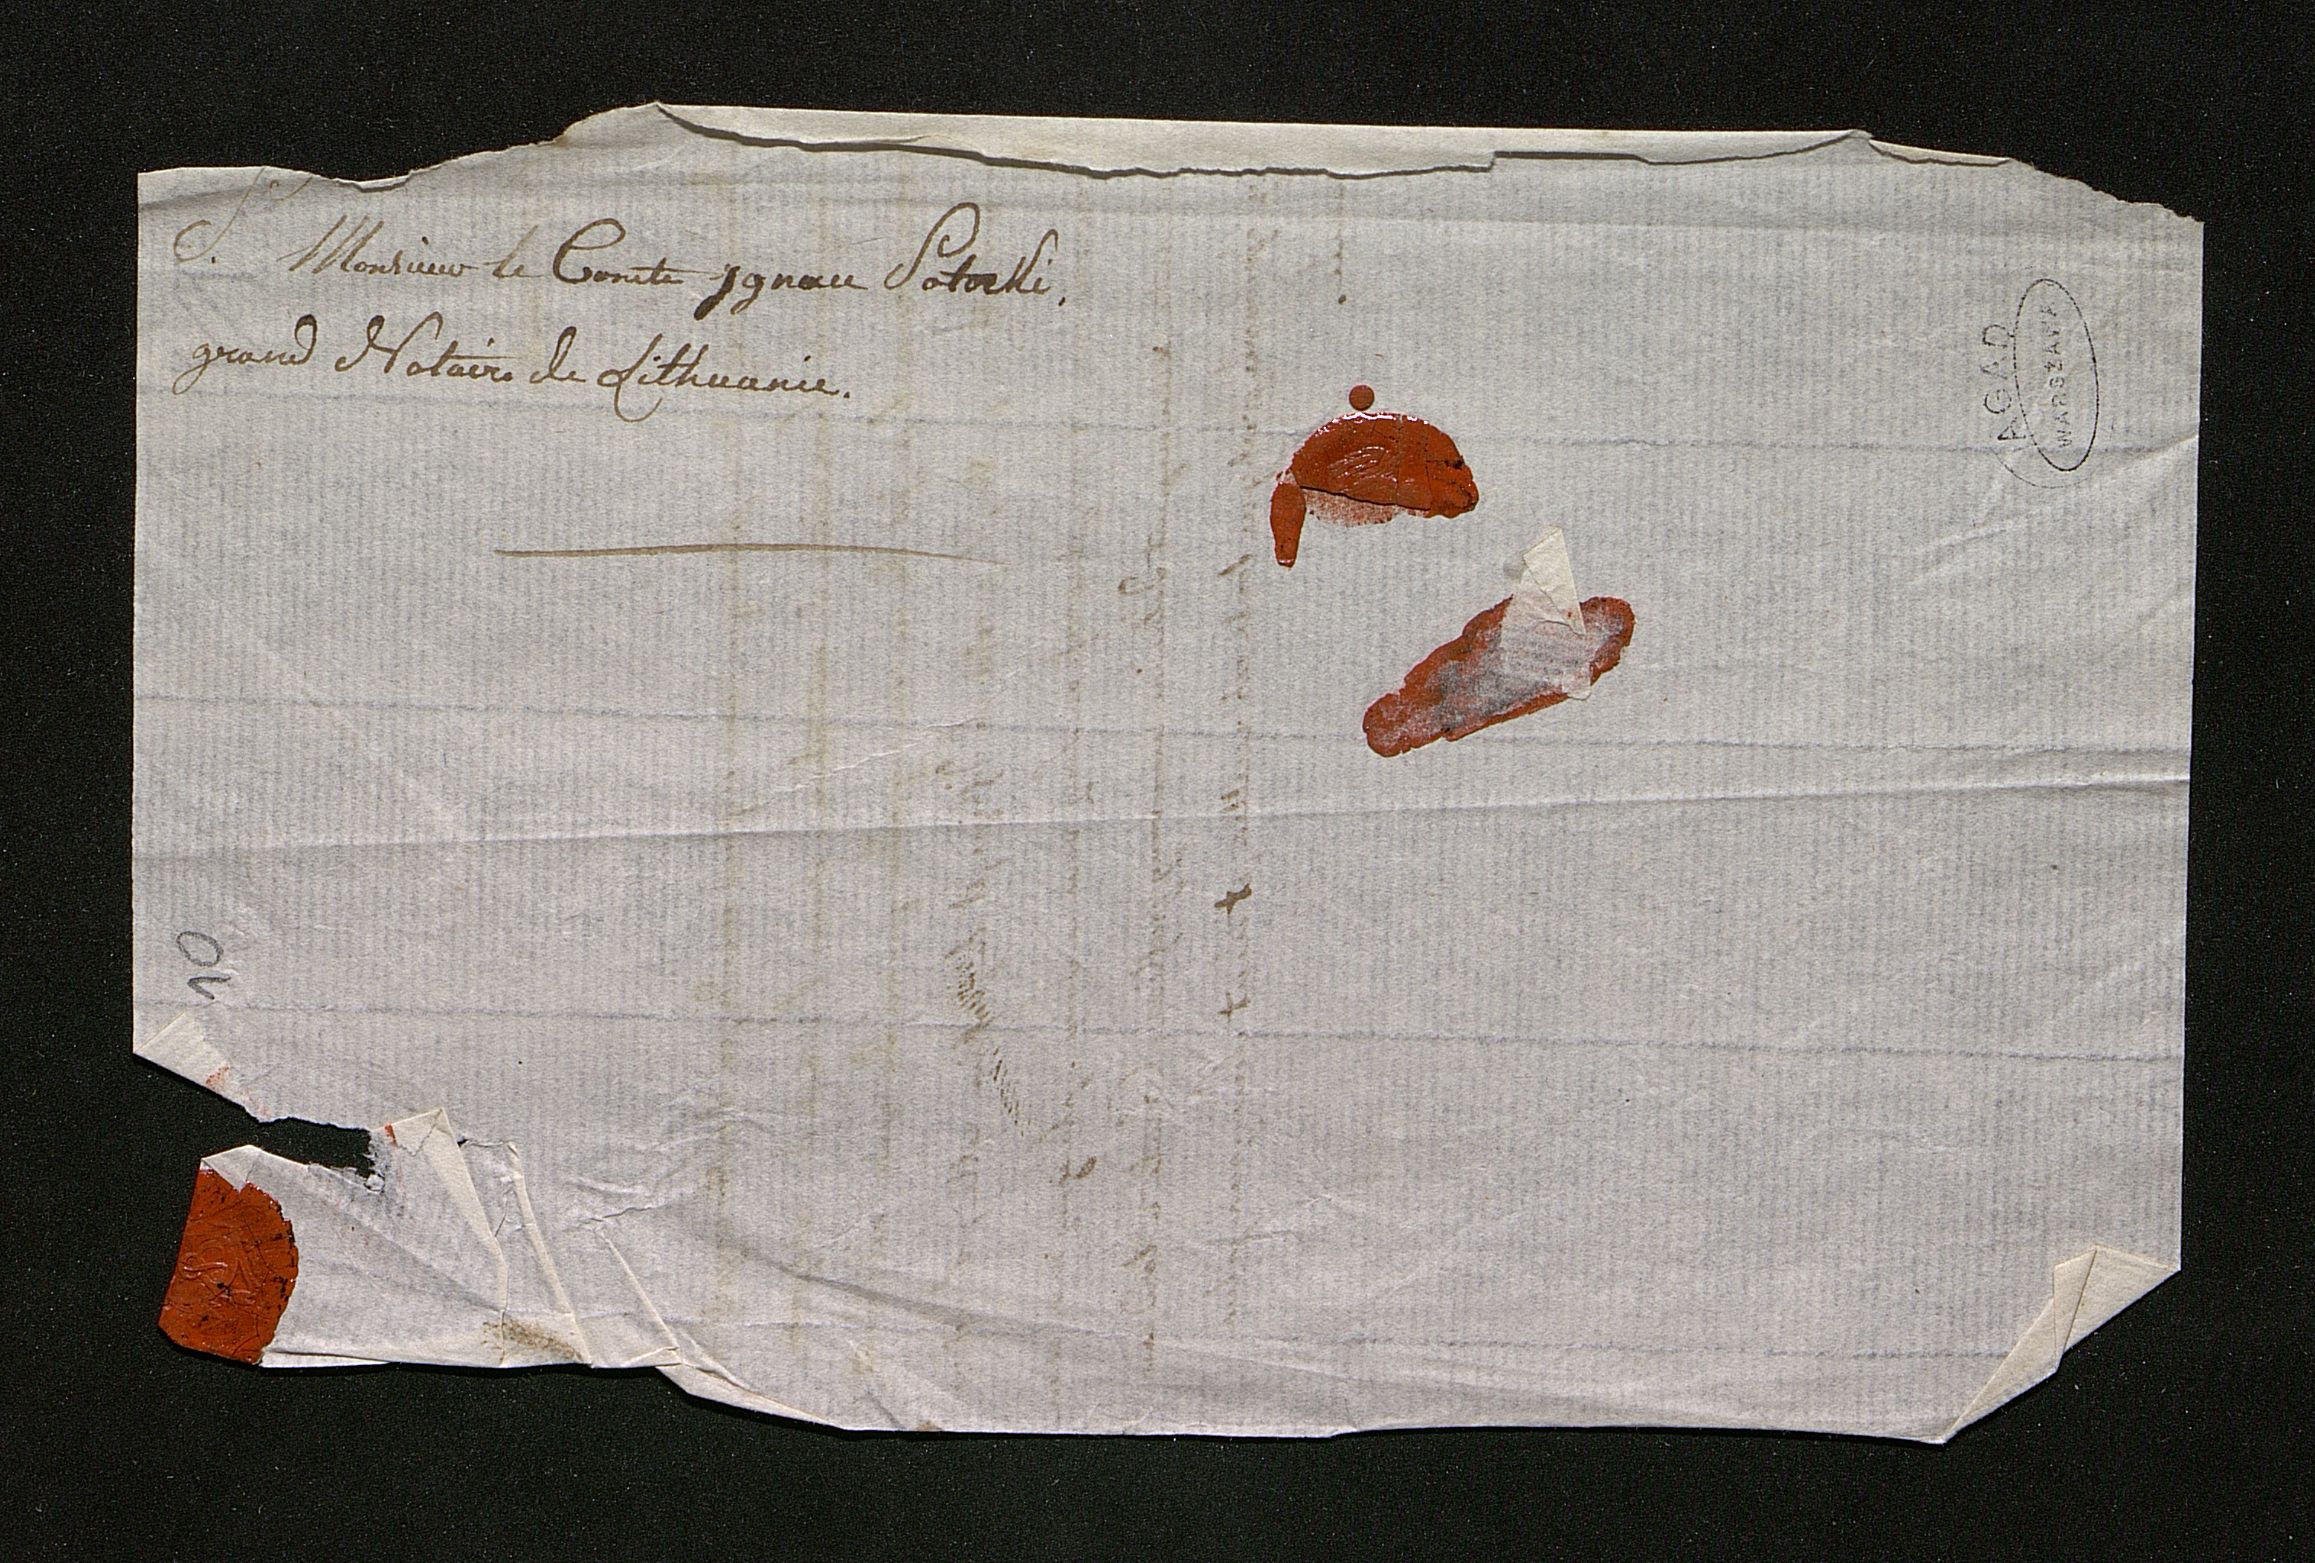 Monsieur le Comte Ignace Potocki,
grand Notaire de Lithuanie.
AGAD
WARSZAWA
10